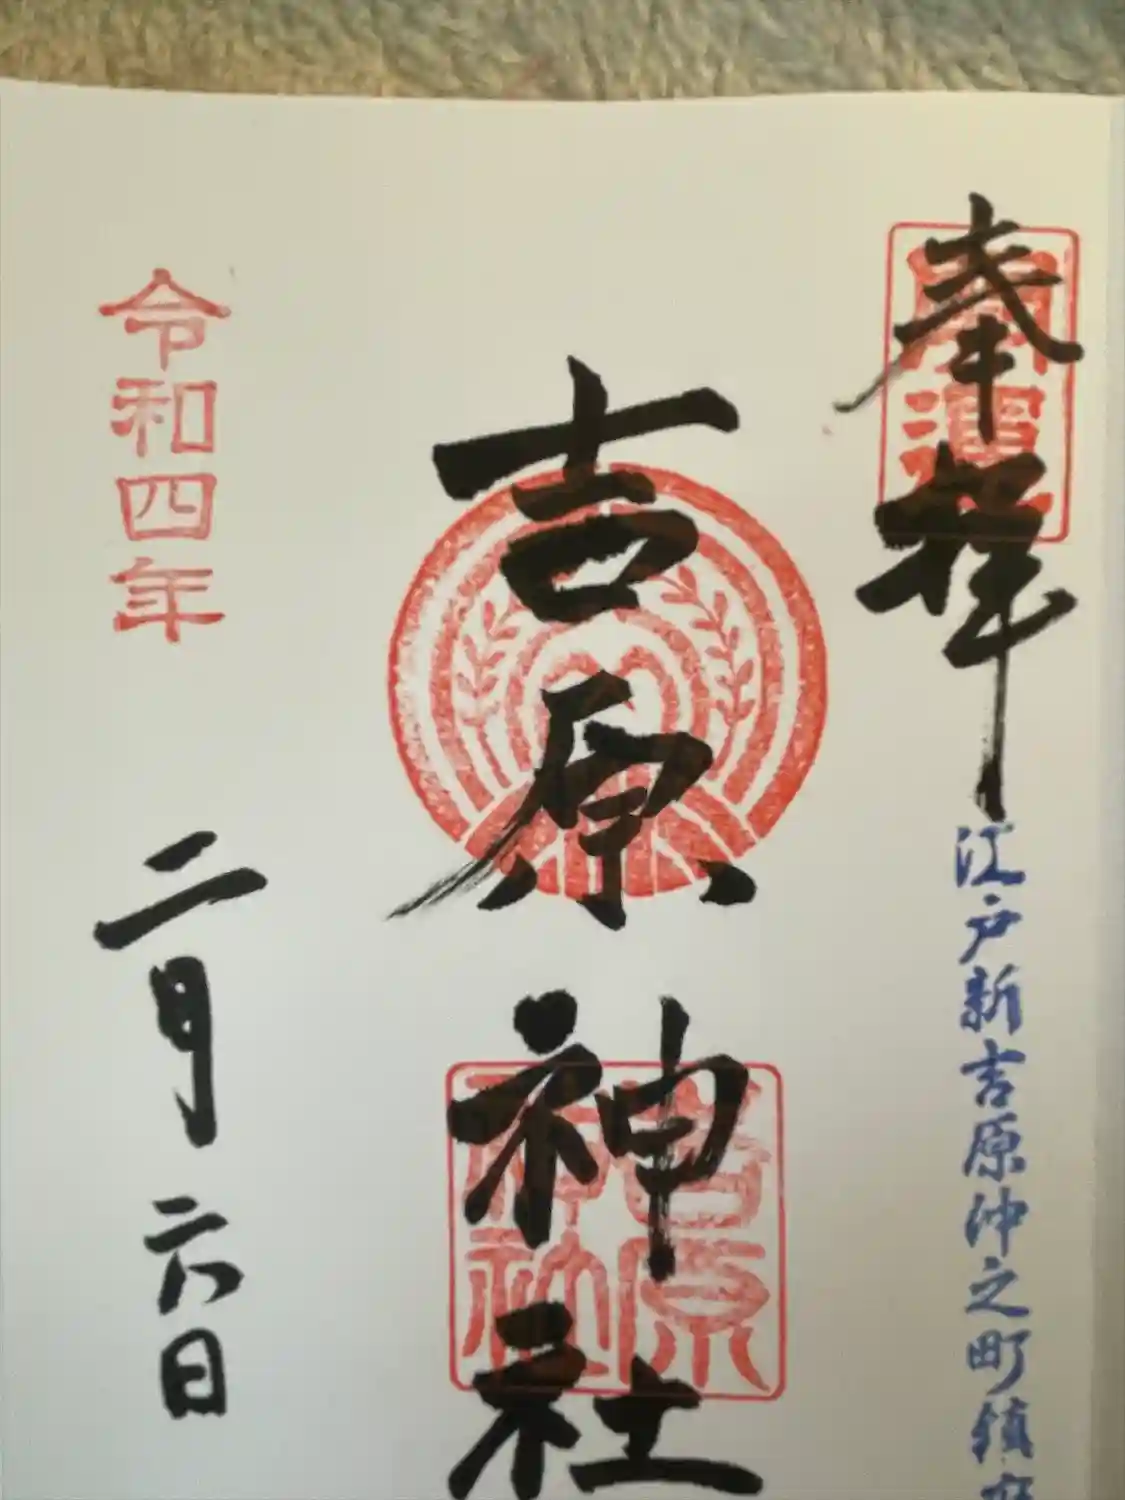 奉拝
開運
江戸新吉原沖之町鎮座
吉原神社
吉原
神社
令和四年
二月六日